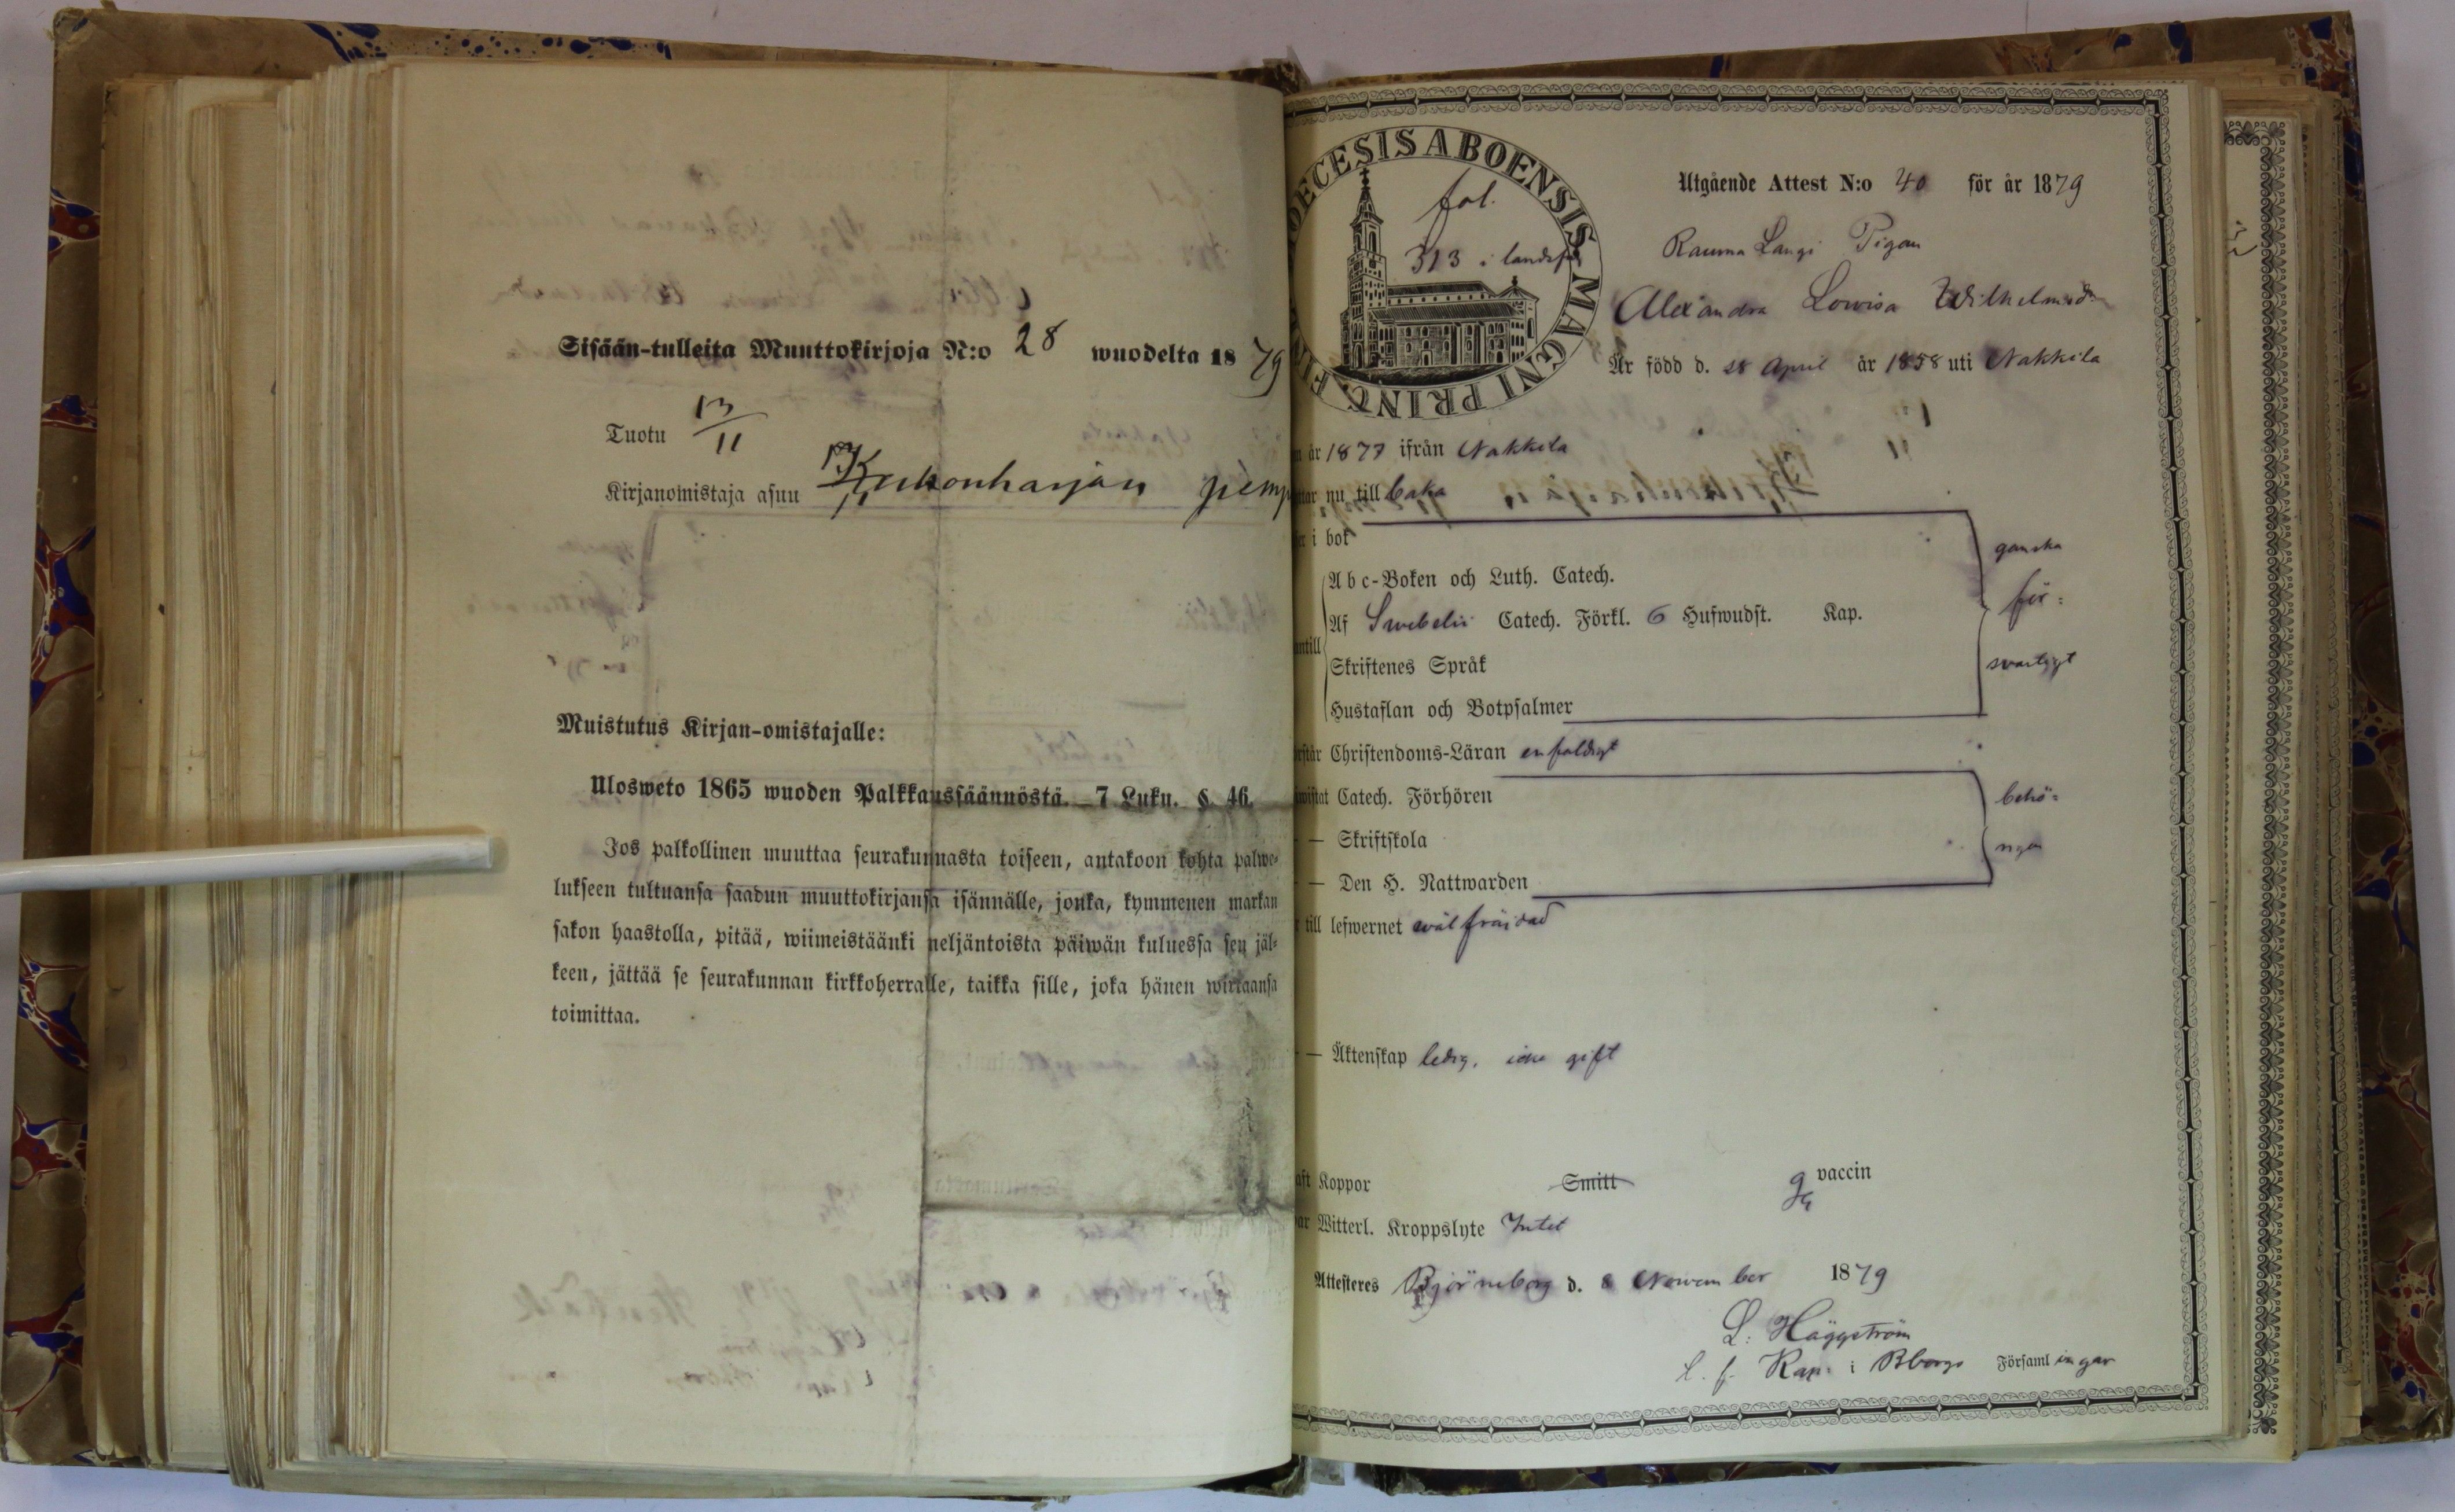 Sisään-tulleita Muuttokirjoja N:o 28 wuodelta 1879
Tuotu 13/11
Kirjanomistaja asuu
Muistutus Kirjan-omistajalle:
Ulosweto 1865 wuoden Palkkaussäännöstä. 7 Luku. §. 46.
Jos palkollinen muuttaa seurakunnasta toiseen, antakoon kohta palwe-
lukseen tultuansa saadun muuttokirjansa isännälle, jonka, kymmenen markan
sakon haastolla, pitää, wiimeistäänki neljäntoista päiwän kuluessa sen jäl-
keen, jättää se seurakunnan kirkkoherralle, taikka sille, joka hänen wirkaansa
toimittaa.
DECESIS ABOENSIS MAGNI PRINC. FIN
fol.
313 i landsf
Utgående Attest N:o 40 för år 1879
Rauma Langi Pigan
Alexandra Lowisa Wilhelmsdr
Är född d. 28 April år 1858 uti Nakkila
år 1877 ifrån Nakkila
nu till baka
i bok
Abc-Boken och Luth. Catech.
Af Swebelii Catech. Förkl. 6 Hufwudst. Kap.
Skriftenes Språk
Hustaflan och Botpsalmer
ganska
för-
swarligt
Christendoms-Läran enfaldigt
Catech. Förhören
— Skriftskola
— Den H. Nattwarden
behö-
rigen
till lefwernet wälfräjdad
— Äktenskap ledig, icke gift
Koppor Smitt vaccin
Witterl. Kroppslyte Intet
Attesteres Björneborg d. 8 November 1879
L: Häggström
Kap: i Bborgs Församlingar